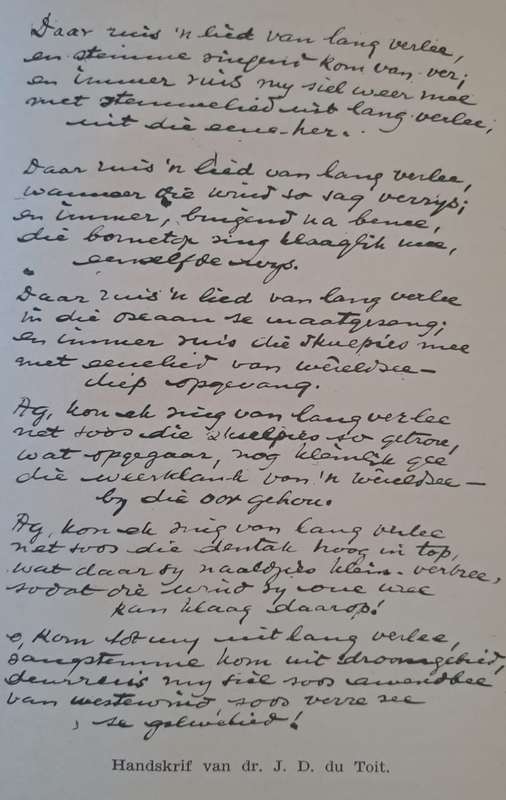 Daar ruis 'n lied van lang verlee,
en stemme singend kom van ver;
en immer ruis my siel weer mee
met stemmelied uit lang verlee,
uit die eeue her.
Daar ruis 'n lied van lang verlee,
wanneer die wind so sag verrys;
en immer, buigend na benee,
die bometop sing klaaglik mee,
eenselfde wys.
Daar ruis 'n lied van lang verlee
in die oseaan se maatgesang;
en immer ruis die skulpies mee
met eeuelied van wêreldsee —
diep opgevang.
Ag, kon ek sing van lang verlee
net soos die skulpies so getrou,
wat opgegaar, nog kleinlik gee
die weerklank van 'n wêreldsee —
by die oor gehou.
Ag, kon ek sing van lang verlee
net soos die dentak hoog in top,
wat daar sy naaldjies klein verbree,
sodat die wind sy oue wee
kan klaag daarop!
o, Kom tot my uit lang verlee,
sangstemme kom uit droomgebied,
deurruis my siel soos awendbee
van westewind, soos verre see
se golwelied!
Handskrif van dr. J. D. du Toit.